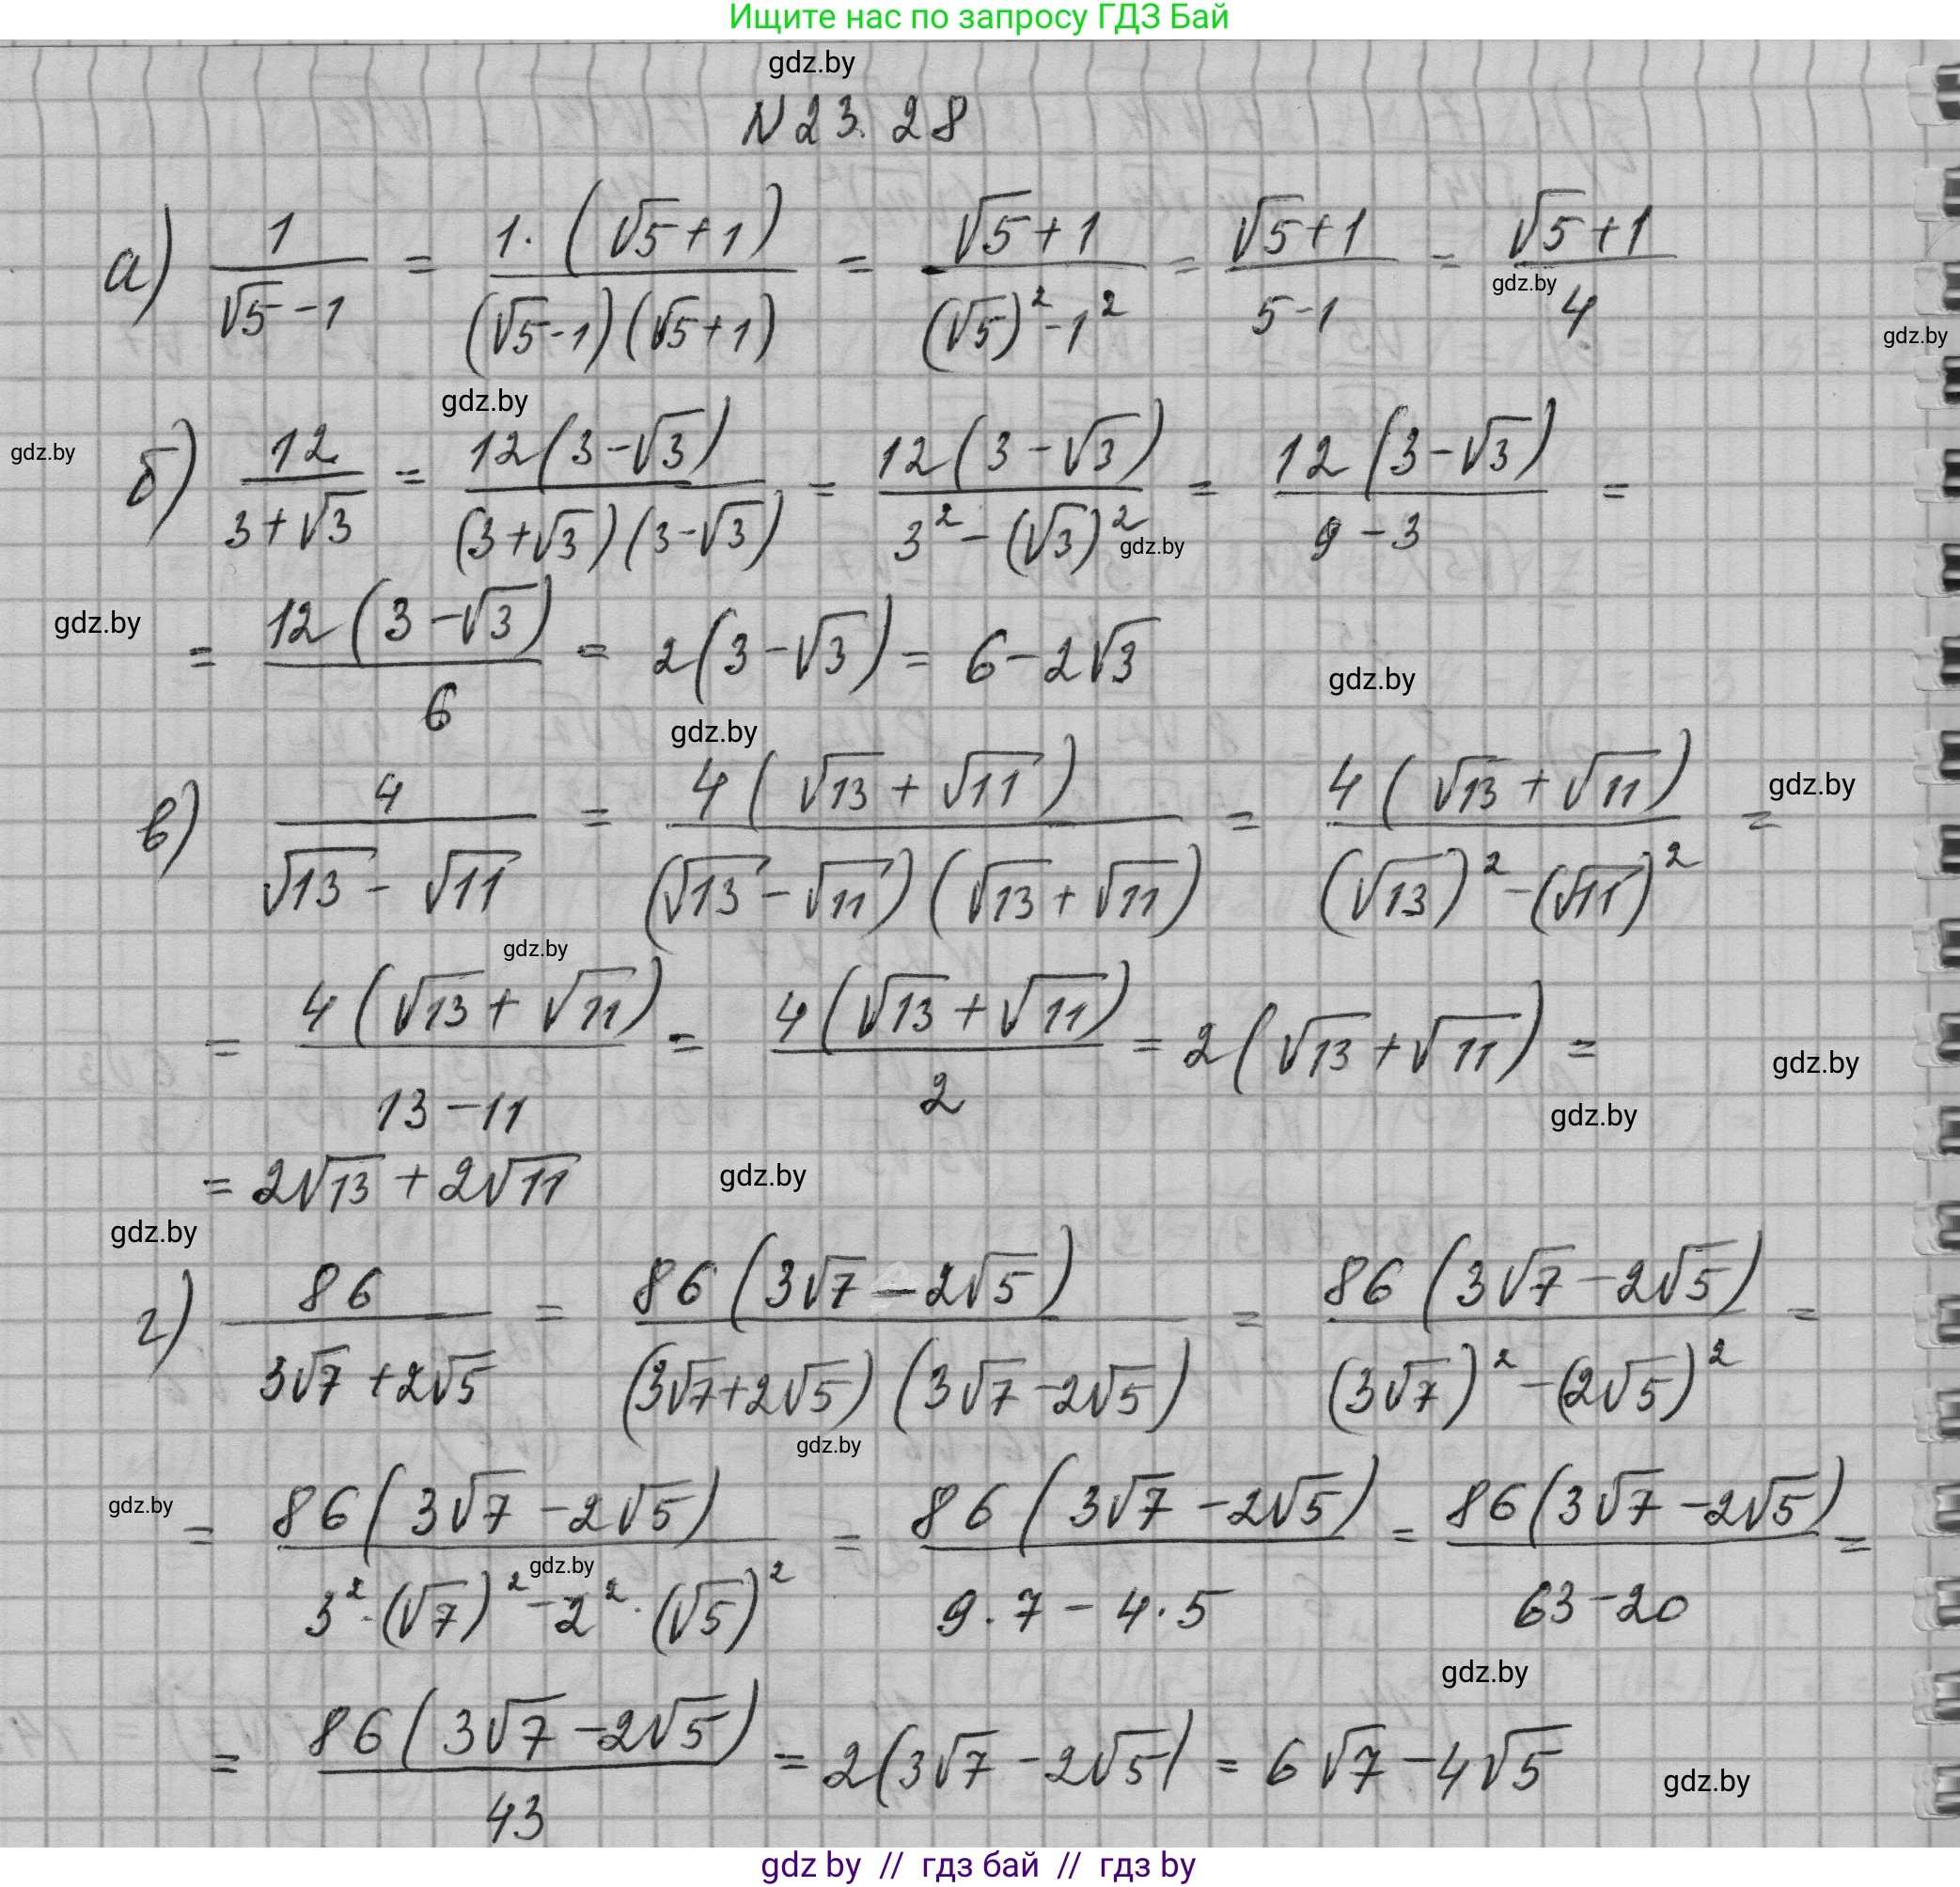 Ищите нас по запросу ГДЗ Бай
gdz.by
N 23.28
а) 1/(√5-1) = 1·(√5+1)/((√5-1)(√5+1)) = (√5+1)/((√5)²-1²) = (√5+1)/(5-1) = (√5+1)/4
gdz.by
gdz.by
gdz.by
gdz.by
б) 12/(3+√3) = 12(3-√3)/((3+√3)(3-√3)) = 12(3-√3)/(3²-(√3)²) = 12(3-√3)/(9-3) =
gdz.by
gdz.by
= 12(3-√3)/6 = 2(3-√3) = 6-2√3
gdz.by
gdz.by
gdz.by
в) 4/(√13-√11) = 4(√13+√11)/((√13-√11)(√13+√11)) = 4(√13+√11)/((√13)²-(√11)²) =
gdz.by
= 4(√13+√11)/(13-11) = 4(√13+√11)/2 = 2(√13+√11) =
gdz.by
gdz.by
= 2√13+2√11
gdz.by
gdz.by
г) 86/(3√7+2√5) = 86(3√7-2√5)/((3√7+2√5)(3√7-2√5)) = 86(3√7-2√5)/((3√7)²-(2√5)²) =
gdz.by
gdz.by
= 86(3√7-2√5)/(3²·(√7)²-2²·(√5)²) = 86(3√7-2√5)/(9·7-4·5) = 86(3√7-2√5)/(63-20) =
gdz.by
gdz.by
= 86(3√7-2√5)/43 = 2(3√7-2√5) = 6√7-4√5
gdz.by
gdz by // гдз бай // гдз by